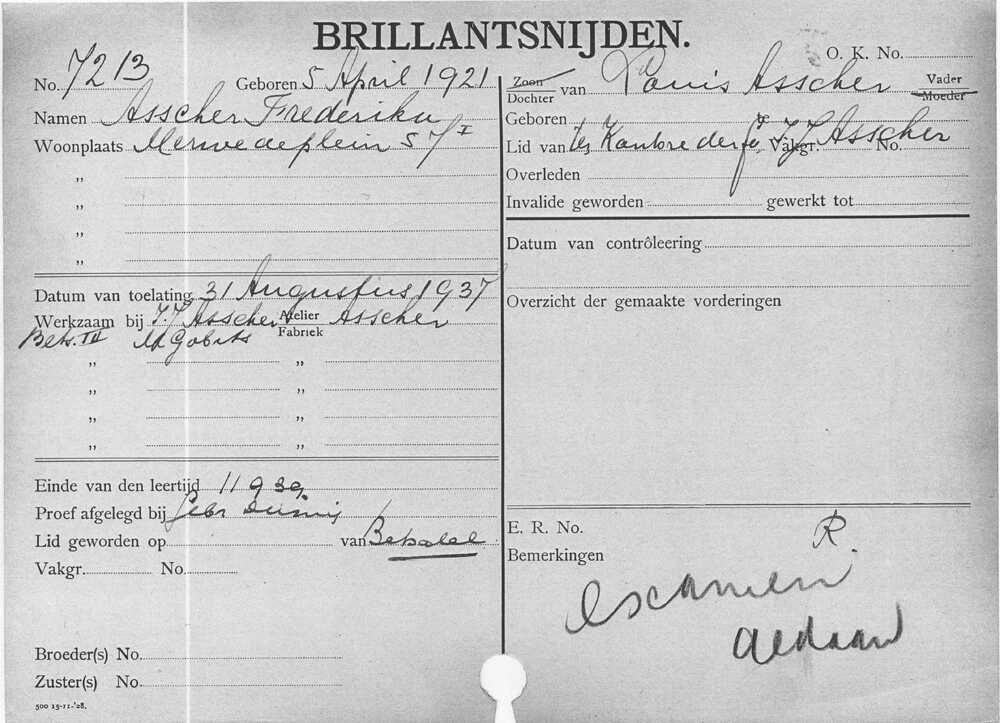 BRILLANTSNIJDEN.
No. 7213 Geboren 5 April 1921
Namen Asscher Frederika
Woonplaats Merwedeplein 57 I
„
„
„
„
Datum van toelating 31 Augustus 1937
Werkzaam bij J.J Asscher Atelier Fabriek Asscher
Bets. M Gobets
„ „
„ „
„ „
„ „
Einde van den leertijd 11 9 39.
Proef afgelegd bij Gebr
Lid geworden op van Betsalel
Vakgr. No.
Broeder(s) No.
Zuster(s) No.
500 15-11-'28.
O. K. No.
Zoon Dochter van Louis Asscher Vader Moeder
Geboren
Lid van ter Kantore der fa J.J Asscher Vakgr. No.
Overleden
Invalide geworden gewerkt tot
Datum van contrôleering
Overzicht der gemaakte vorderingen
E. R. No. R.
Bemerkingen
examen
gedaan